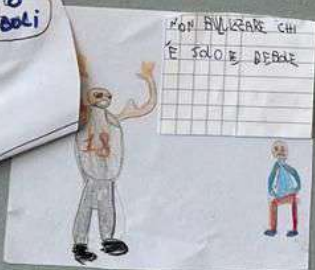 BOLI
NON BULLIZZARE CHI
È SOLO E DEBOLE
18